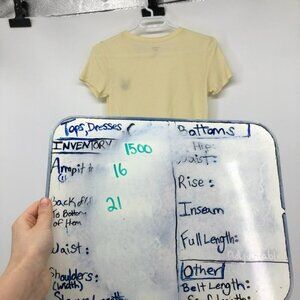 Tops, Dresses
INVENTORY 1500
Armpit 16
Back of
To Bottom
of Item
21
Waist:
Shoulders:
(width)
Bottoms
Hip:
Waist:
Rise:
Inseam
Full Length:
Other
Belt Length: